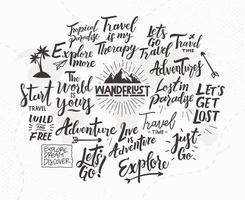 Tropical
Paradise
Travel
is my
Therapy
Let's
Go
Travel
Travel
TIME
Explore
more
Adventures
The
World
is
Yours
WANDERLUST
Lost in
Paradise
LET'S
GET
LOST
Start
TRAVEL
WILD
AND THE
FREE
Adventure
Live is
Adventure
Travel
TIME
Just-
Go!
EXPLORE
DREAM
DISCOVER
Let's
Go!
Explore